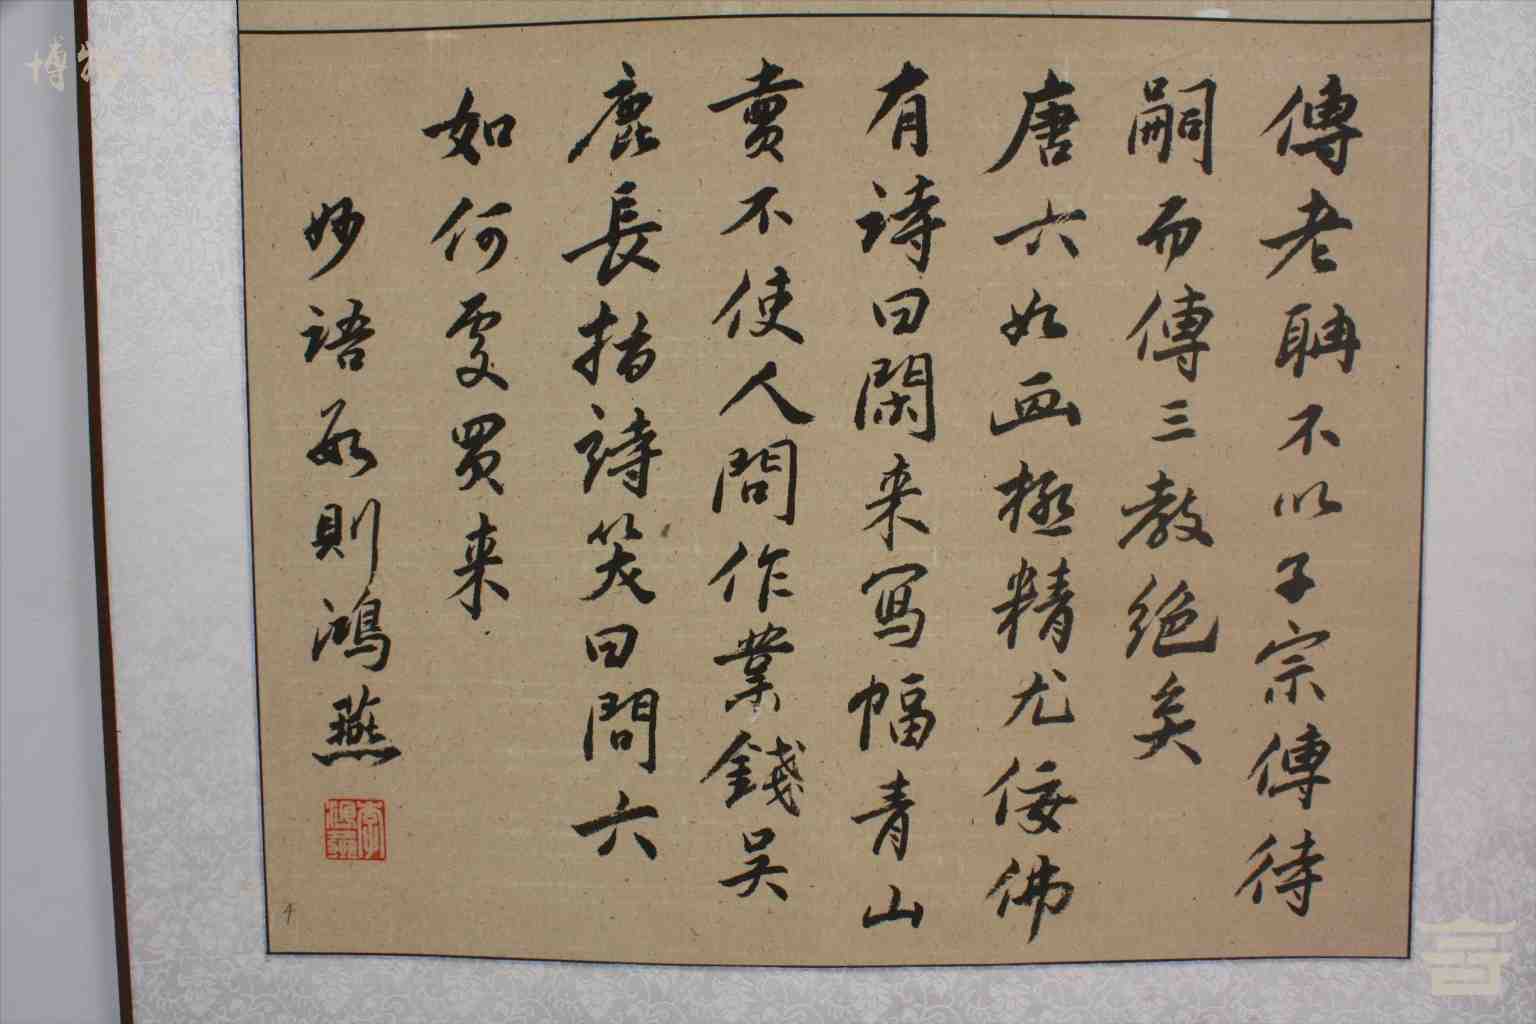 傳老聃不以子宗傳待
嗣而傳三教絕矣
唐六如画極精尤佞佛
有詩曰閑来寫幅青山
賣不使人間作業錢吴
鹿長指詩笑曰問六
如何處買来
妙語 則鴻燕